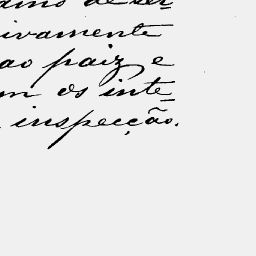 de ser-
ivamente
ao paiz e
m os inte-
inspecção.